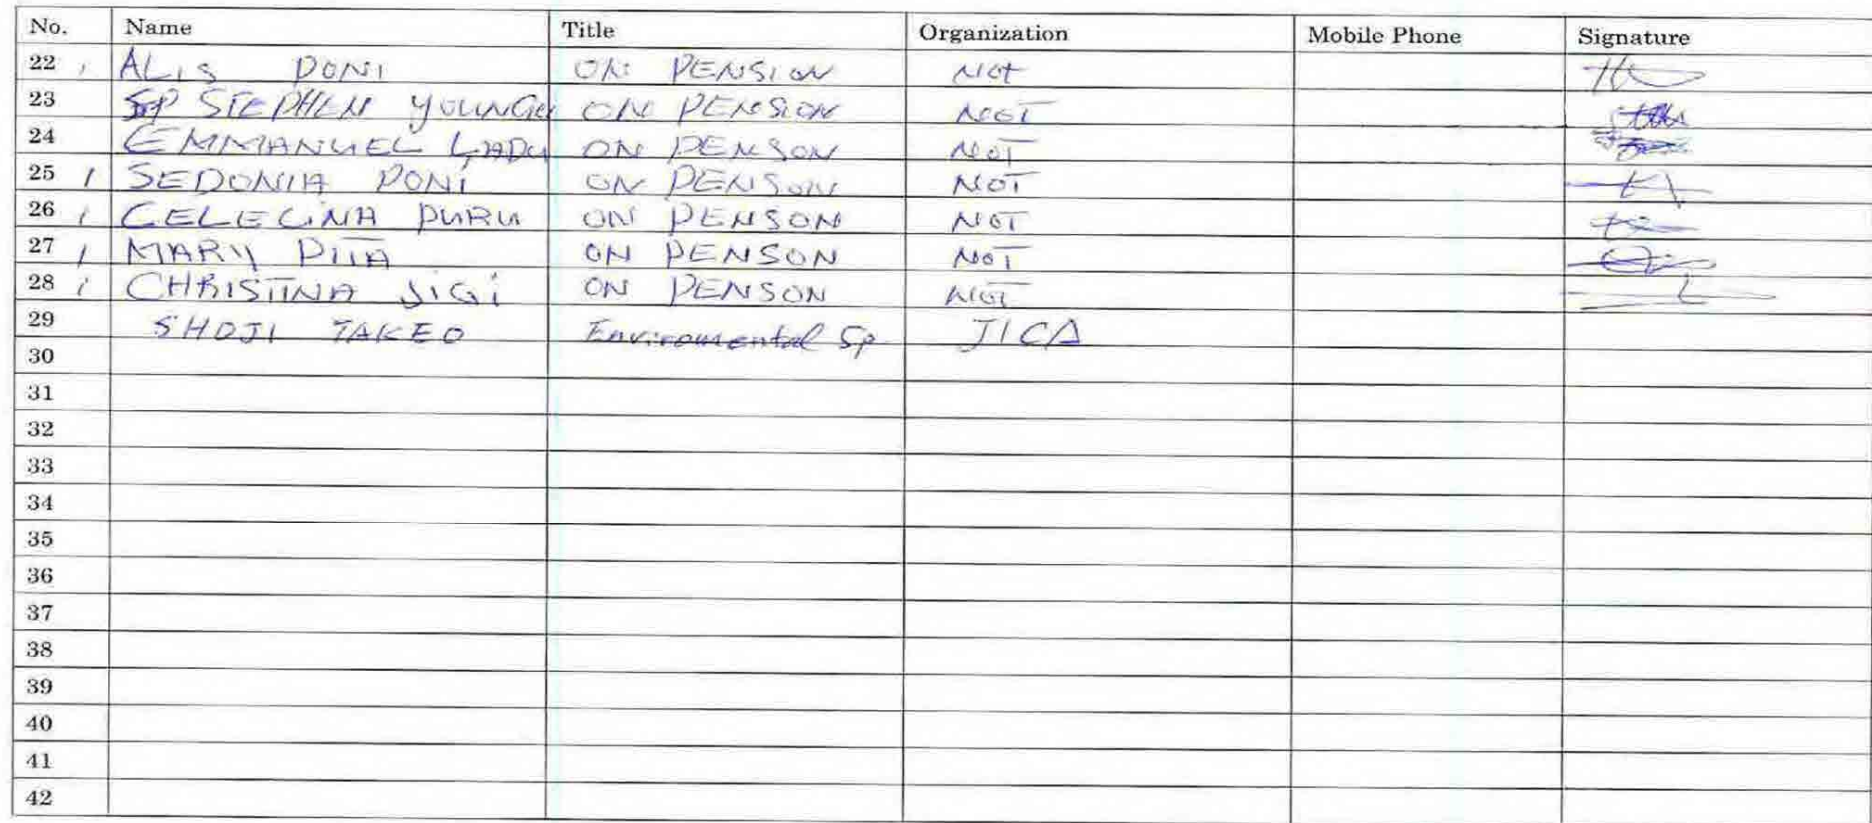 No. Name Title Organization Mobile Phone Signature
22 ALIS PONI ON PENSION NOT
23 SP STEPHEN YOUNGU ON PENSION NOT
24 EMMANUEL LADU ON PENSON NOT
25 SEDONIA PONI ON PENSON NOT
26 CELECINA PURU ON PENSON NOT
27 MARY PITA ON PENSON NOT
28 CHRISTINA JIGI ON PENSON NOT
29 SHOJI TAKEO Enviromental Sp JICA
30
31
32
33
34
35
36
37
38
39
40
41
42